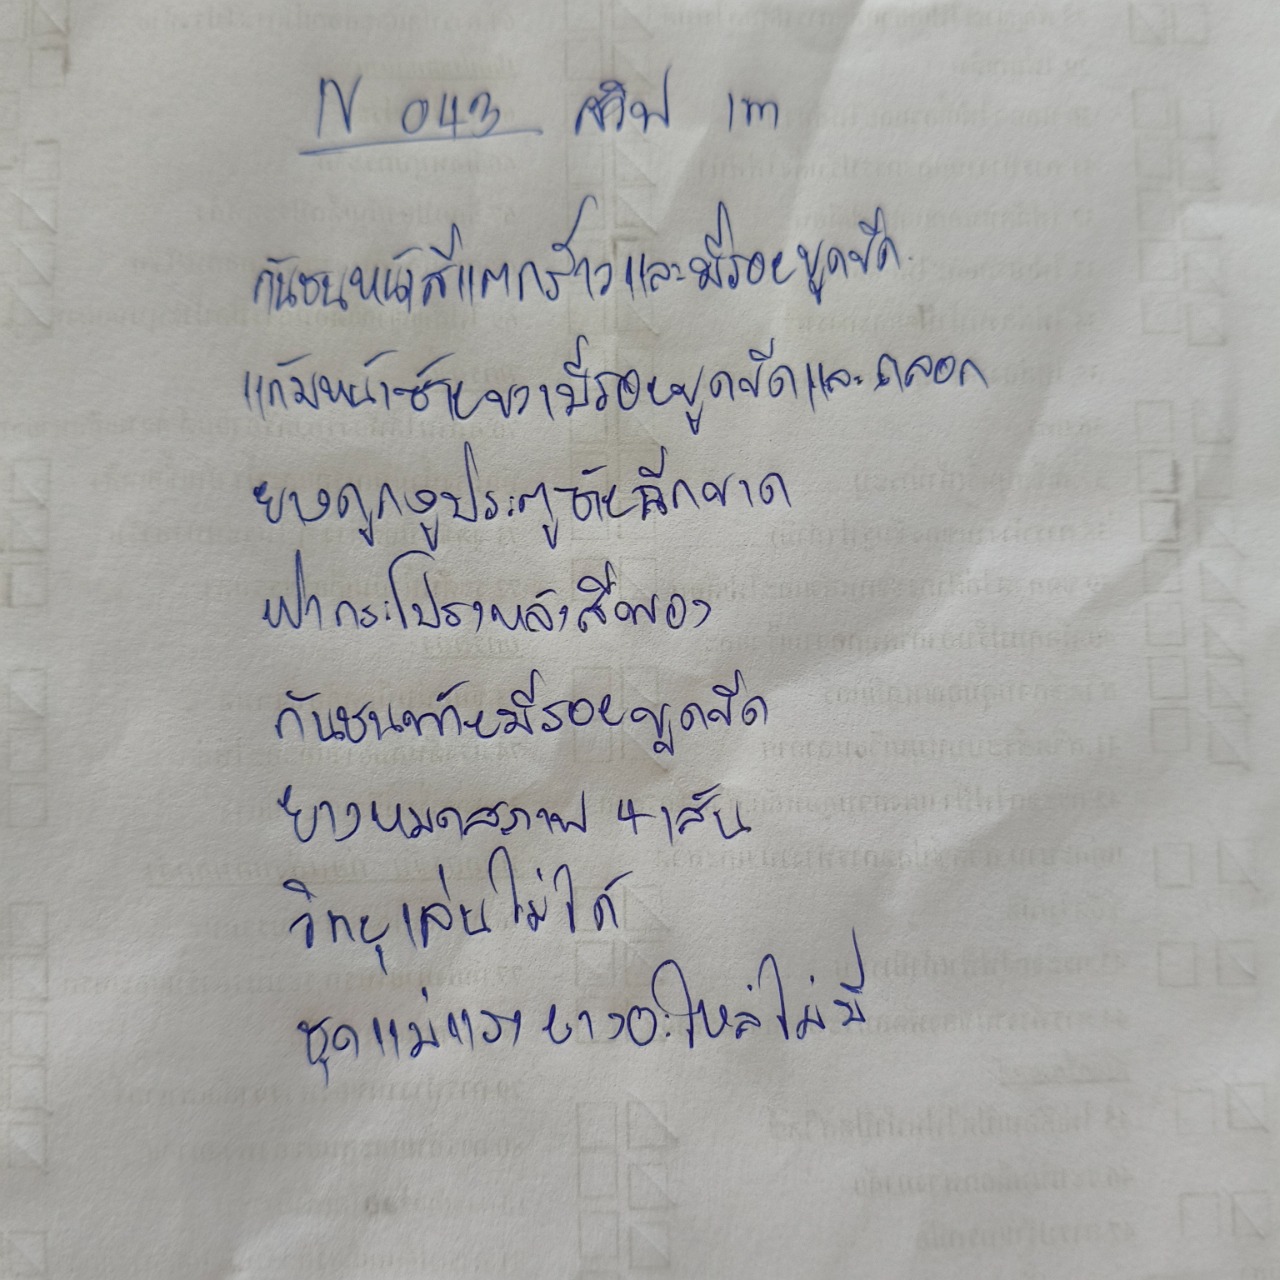 N 043 สวิฟ เทา
กันชนหน้าสีแตกร้าวและมีรอยขูดขีด
แก้มหน้าซ้ายขวามีรอยขูดขีดและถลอก
ยางดูกงูประตูซ้ายฉีกขาด
ฝากระโปรงหลังสีพอง
กันชนท้ายมีรอยขูดขีด
ยางหมดสภาพ 4 เส้น
วิทยุเล่นไม่ได้
ชุดแม่แรง ยางอะไหล่ไม่มี